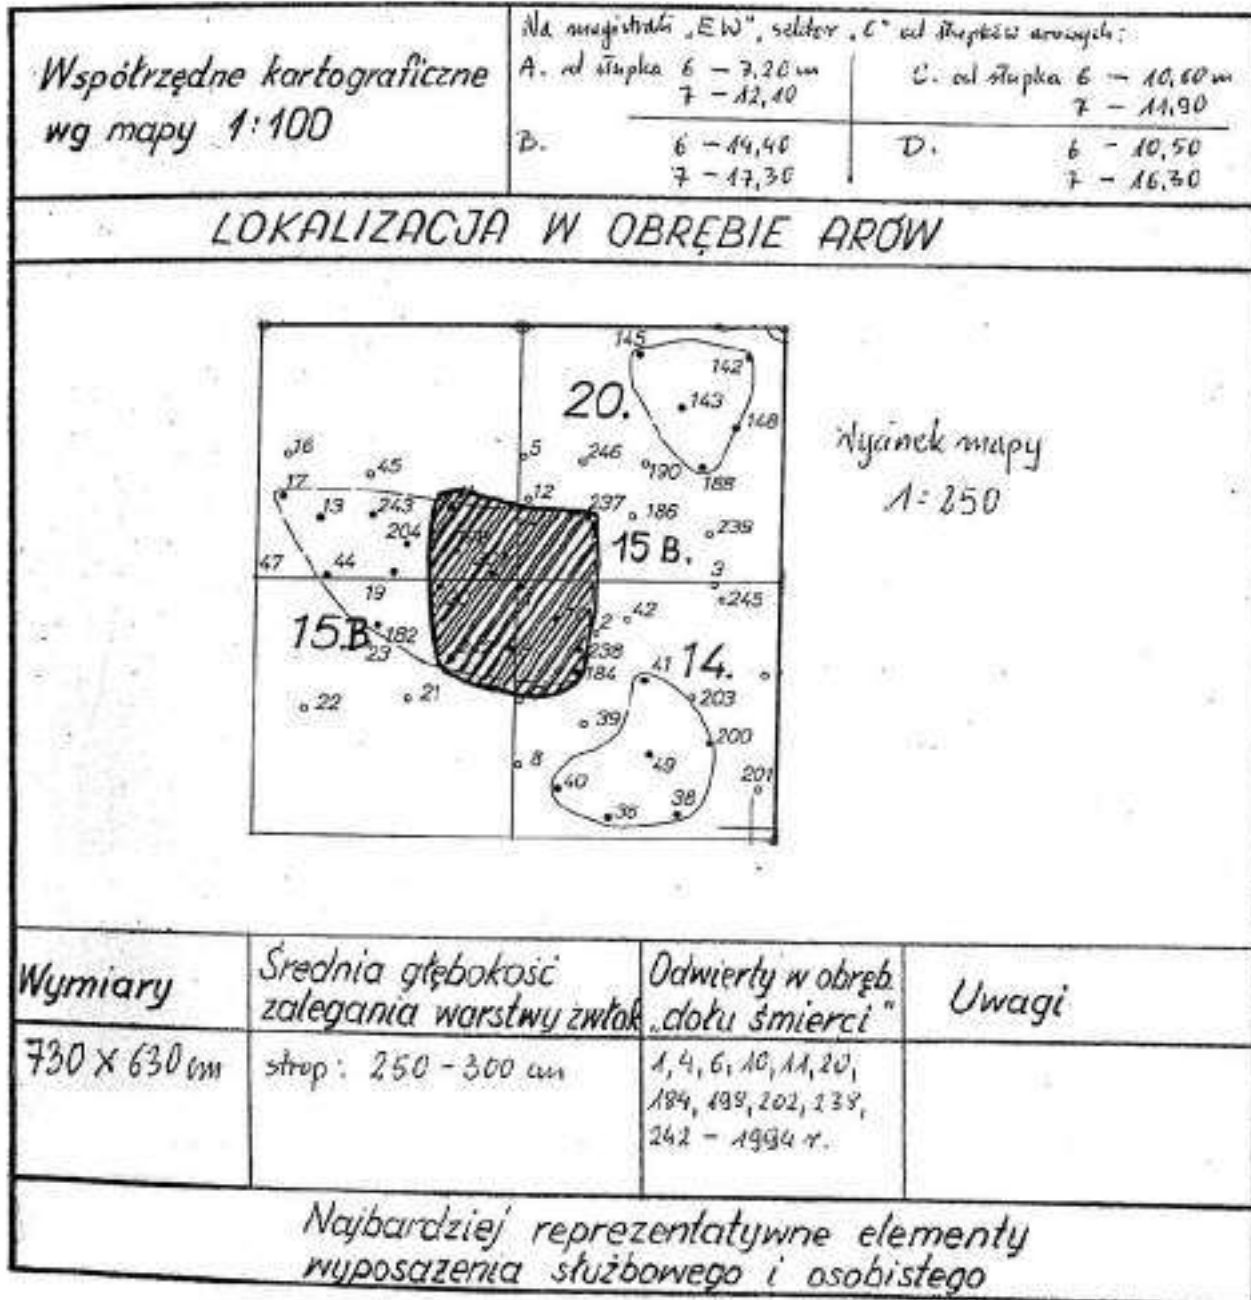 Współrzędne kartograficzne
wg mapy 1:100
Na magistrali „EW”, sektor „C” od słupków arowych:
A. od słupka 6 – 7,20 m
7 – 12,10
C. od słupka 6 – 10,60 m
7 – 11,90
B. 6 – 14,40
7 – 17,30
D. 6 – 10,50
7 – 16,30
LOKALIZACJA W OBRĘBIE ARÓW
145
142
20.
143
148
16
45
5
246
190
188
17
13
243
12
237
186
239
204
15 B.
47
44
19
3
245
15.B
182
23
2
42
238
184
41
14.
203
22
21
39
200
8
49
40
38
201
Wycinek mapy
1:250
Wymiary
Średnia głębokość
zalegania warstwy zwłok
Odwierty w obręb.
„dołu śmierci”
Uwagi
730 X 630 cm
strop: 250 – 300 cm
1, 4, 6, 10, 11, 20,
184, 198, 202, 238,
242 – 1994 r.
Najbardziej reprezentatywne elementy
wyposażenia służbowego i osobistego